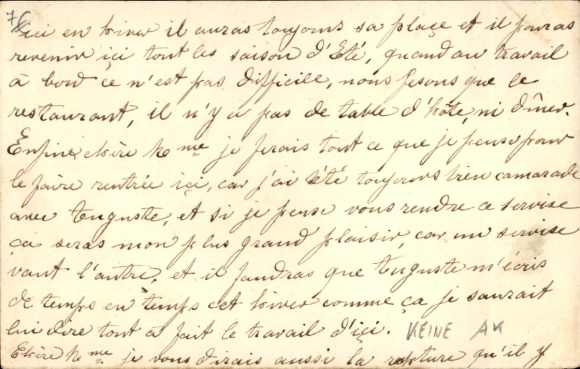 ici en hiver il auras toujours sa place et il pouras
revenir ici tout les saison d'Eté, quand au travail
à bord ce n'est pas difficile, nous fesons que le
restaurant, il n'y a pas de table d'hôte, ni dîner.
Enfin chère Mme je ferais tout ce que je peux pour
le faire rentrée ici, car j'ai été toujours bien camarade
avec Auguste, et si je peux vous rendre ce servise
ça seras mon plus grand plaisir, car un servise
vaut l'autre, et il faudras que Auguste m'écris
de temps en temps cet hiver comme ça je saurait
lui dire tout à fait le travail d'ici. KEINE AK
Chère Mme je vous dirais aussi la qu'il y